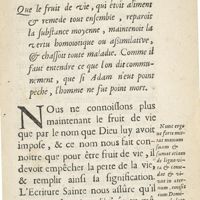 Que le fruit de vie, qui étoit aliment
& remede tout ensemble, reparoit
la substance moyenne, maintenoit la
vertu homoiotique ou assimilative,
& chassoit toute maladie. Comme il
faut entendre ce que l'on dit commu-
nement, que si Adam n'eut point
peché, l'homme ne fut point mort.
NOus ne connoissons plus
maintenant le fruit de vie
que par le nom que Dieu luy avoit
imposé, & ce nom nous fait con-
noître que pour être fruit de vie, il
devoit empêcher la perte de la vie,
& remplir ainsi sa signification.
L'Ecriture Sainte nous assure qu'il